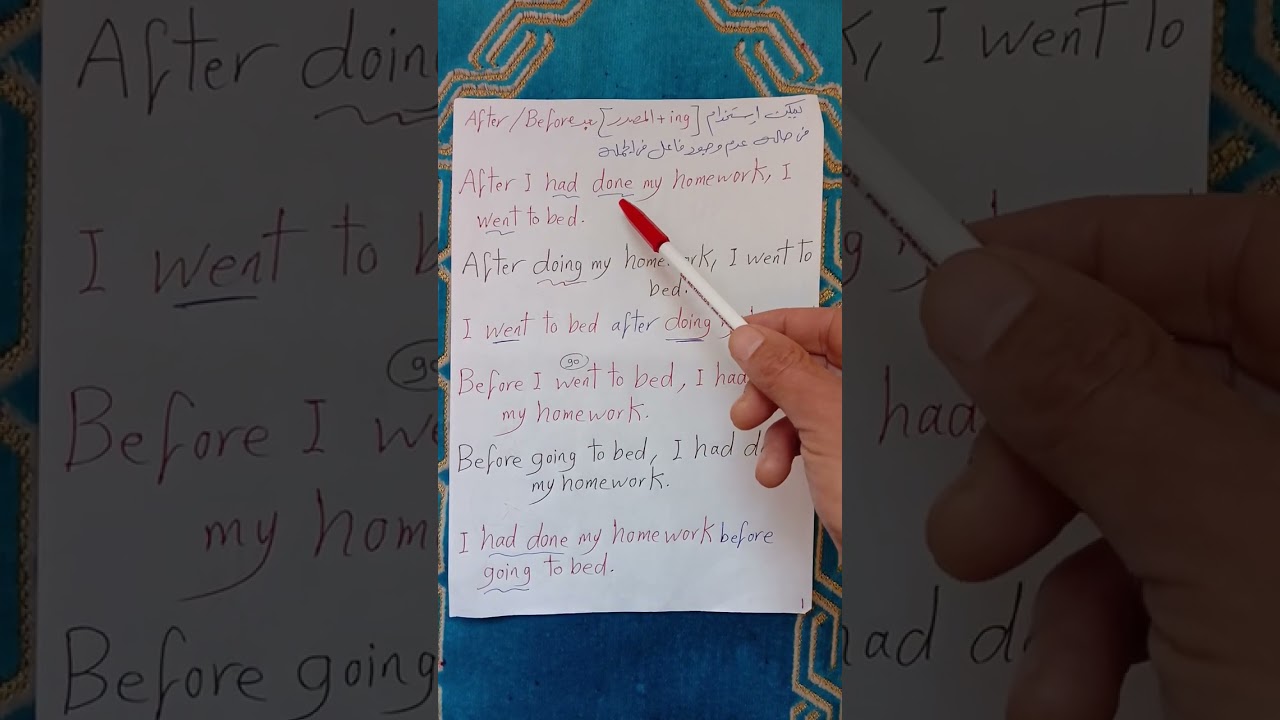 يمكن إستخدام [المصدر + ing] بعد After / Before
في حالة عدم وجود فاعل في الجملة
After I had done my homework, I
went to bed.
After doing my homework, I went to
bed.
I went to bed after doing
go
Before I went to bed, I had
my homework.
Before going to bed, I had d
my homework.
I had done my homework before
going to bed.
1